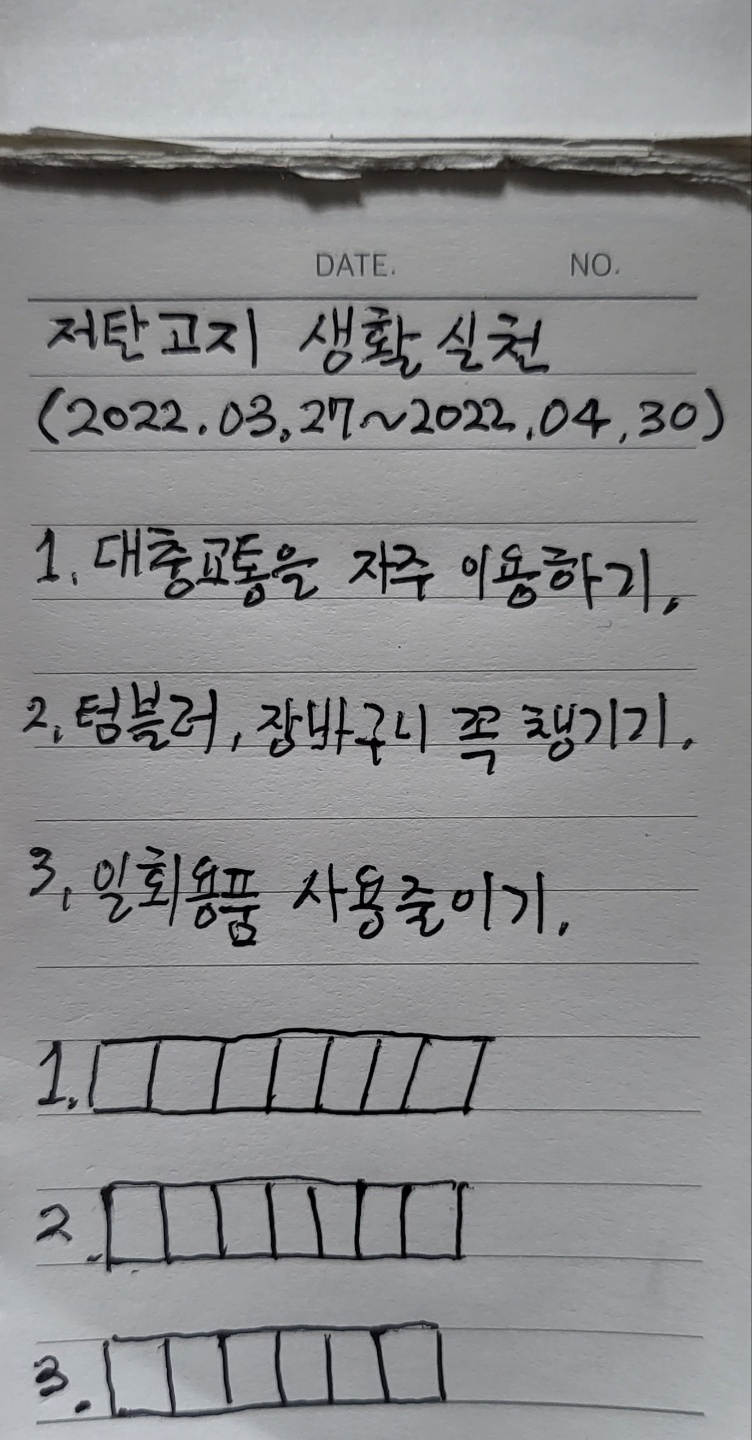 DATE. NO.
저탄고지 생활실천
(2022.03.27~2022.04.30)
1. 대중교통을 자주 이용하기.
2. 텀블러, 장바구니 꼭 챙기기.
3. 일회용품 사용줄이기.
1.
2.
3.